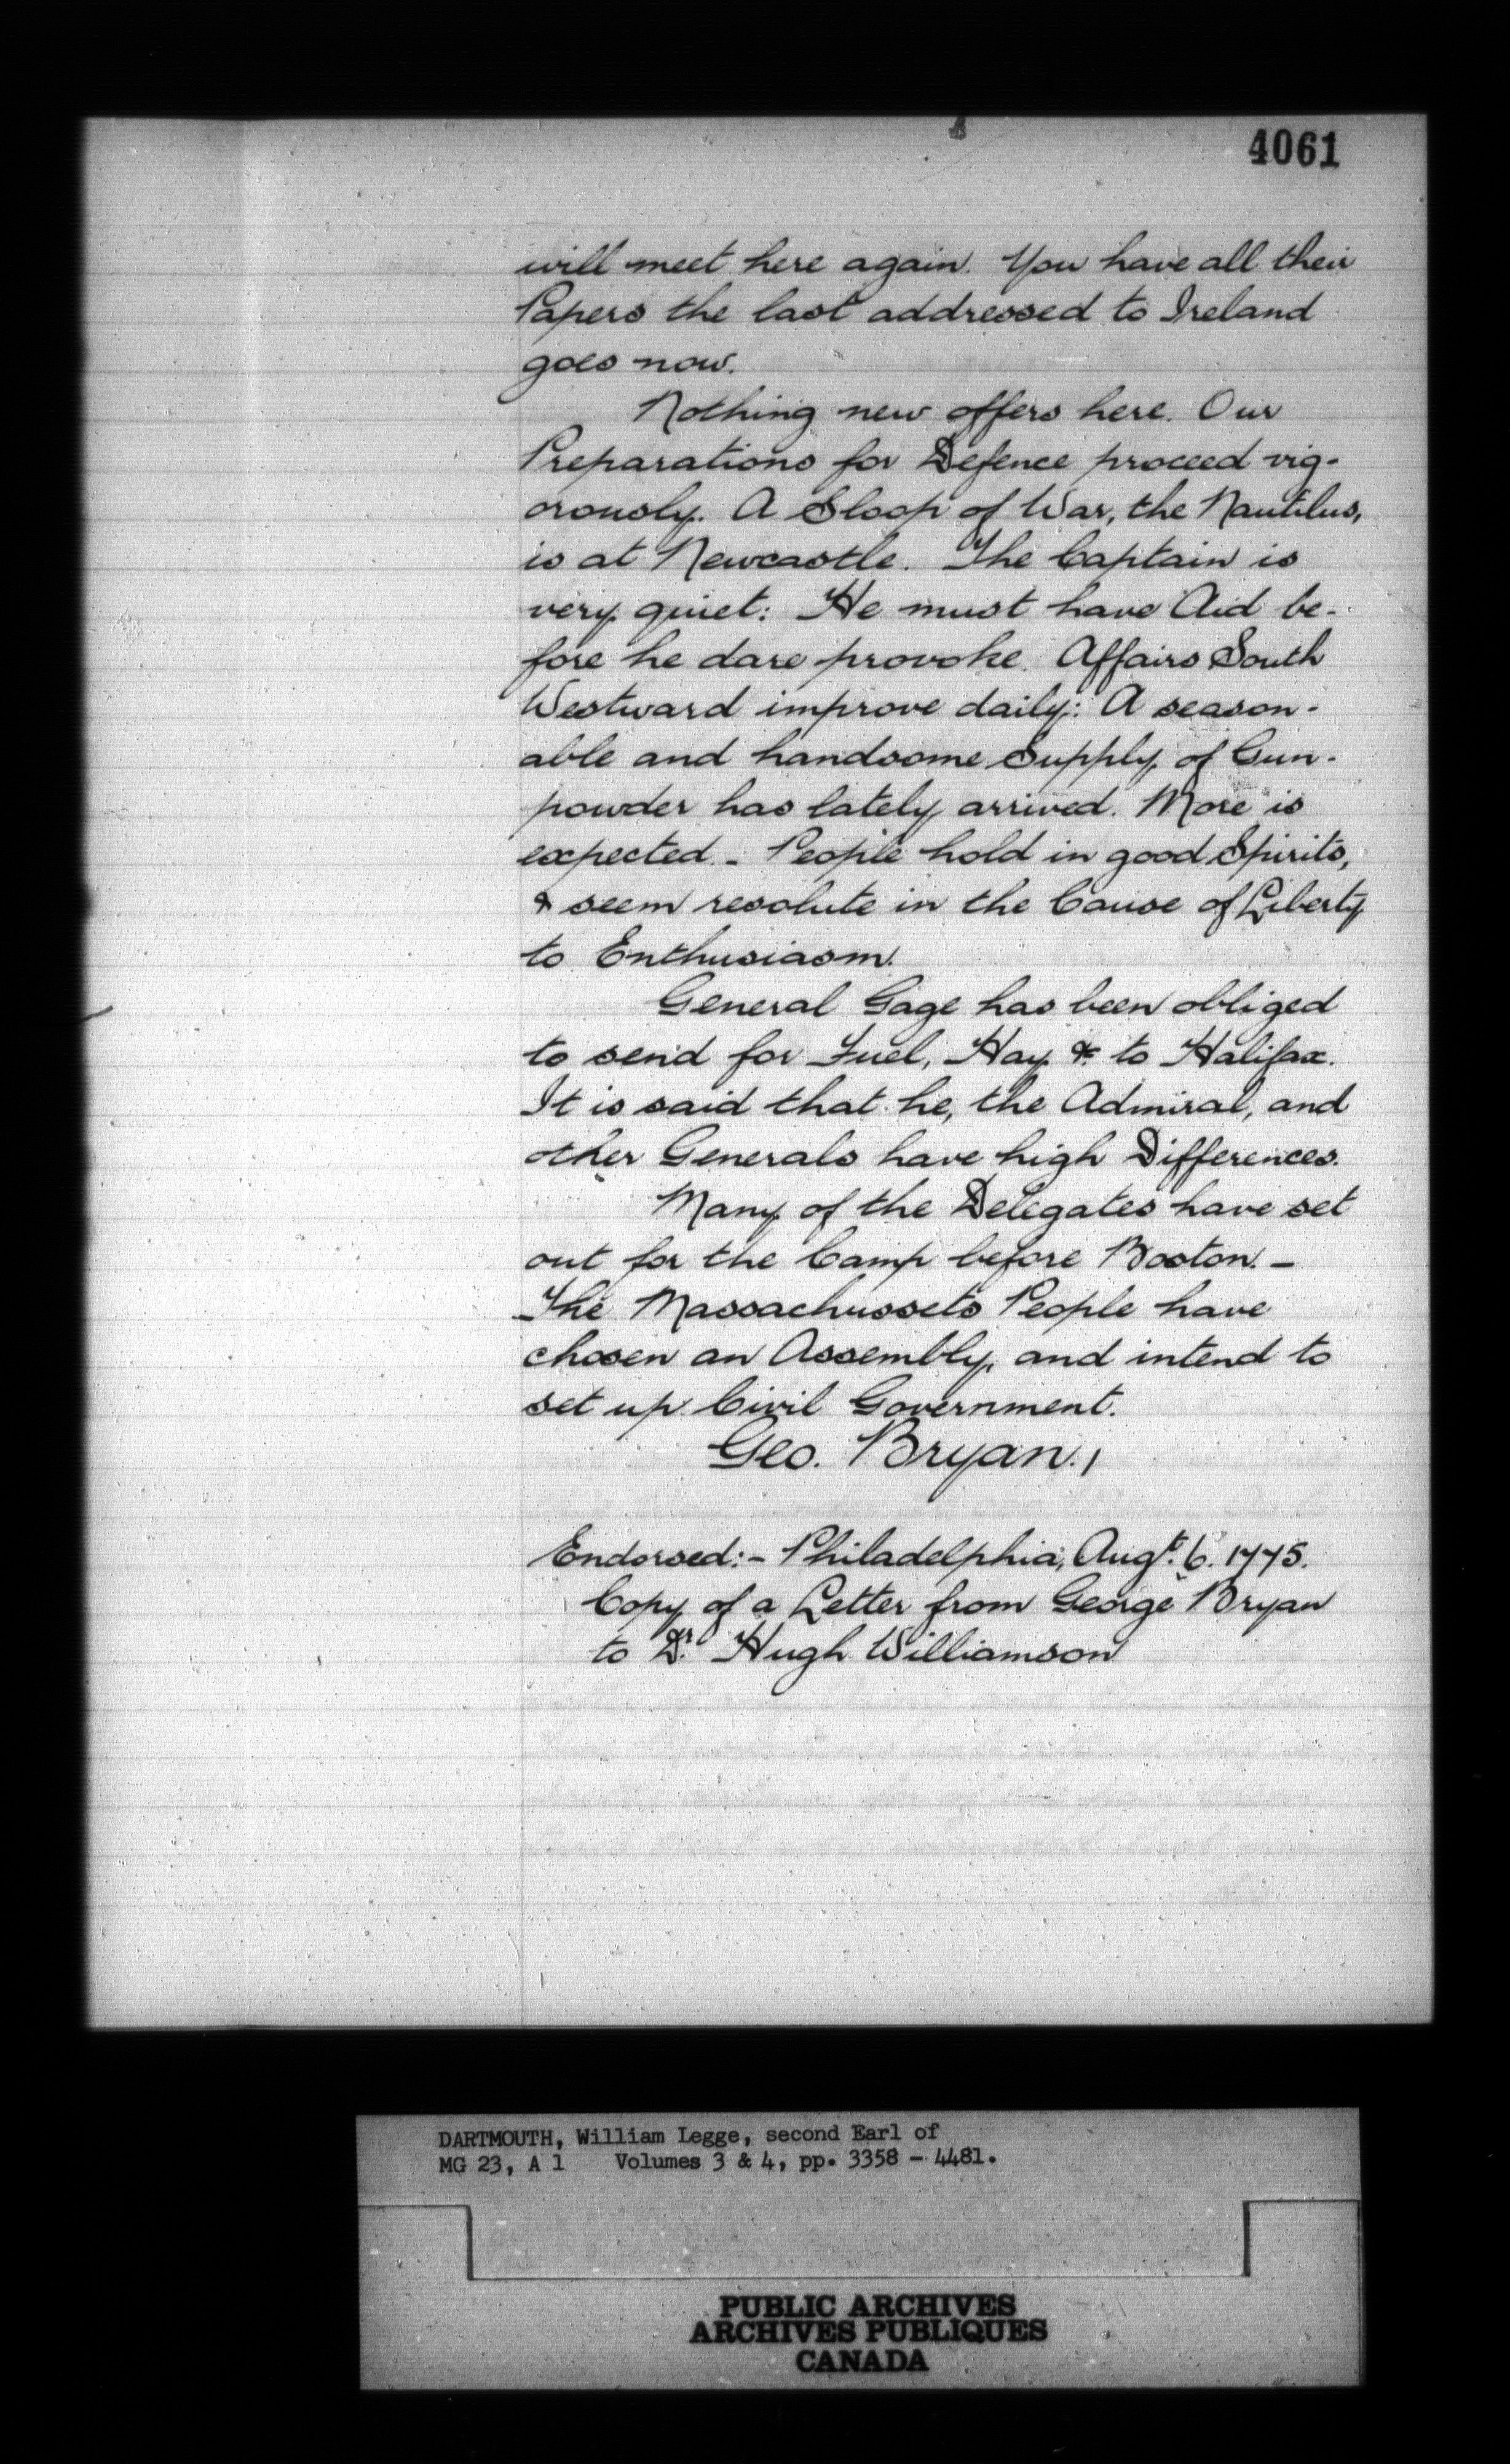 4061
will meet here again. You have all their
Papers the last addressed to Ireland
goes now.
Nothing new offers here. Our
Preparations for Defence proceed vig-
orously. A Sloop of War, the Nautilus,
is at Newcastle. The Captain is
very quiet: He must have Aid be-
fore he dare provoke. Affairs South
Westward improve daily: A season-
able and handsome Supply of Gun-
powder has lately arrived. More is
expected. - People hold in good Spirits,
& seem resolute in the Cause of Liberty
to Enthusiasm.
General Gage has been obliged
to send for Fuel, Hay &c to Halifax.
It is said that he, the Admiral, and
other Generals have high Differences.
Many of the Delegates have set
out for the Camp before Boston. -
The Massachussets People have
chosen an Assembly, and intend to
set up Civil Government.
Geo. Bryan.,
Endorsed:- Philadelphia, Augt. 6. 1775.
Copy of a Letter from George Bryan
to Dr. Hugh Williamson
DARTMOUTH, William Legge, second Earl of
MG 23, A 1 Volumes 3 & 4, pp. 3358 - 4481.
PUBLIC ARCHIVES
ARCHIVES PUBLIQUES
CANADA